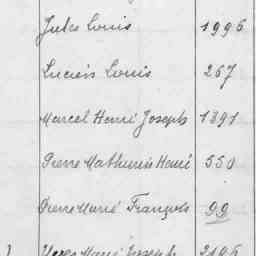 Jules Louis 1996
Lucien Louis 267
Marcel Henri Joseph 1391
Pierre Mathurin Henri 550
Pierre Marie François 99
Yves Marie Joseph 2196